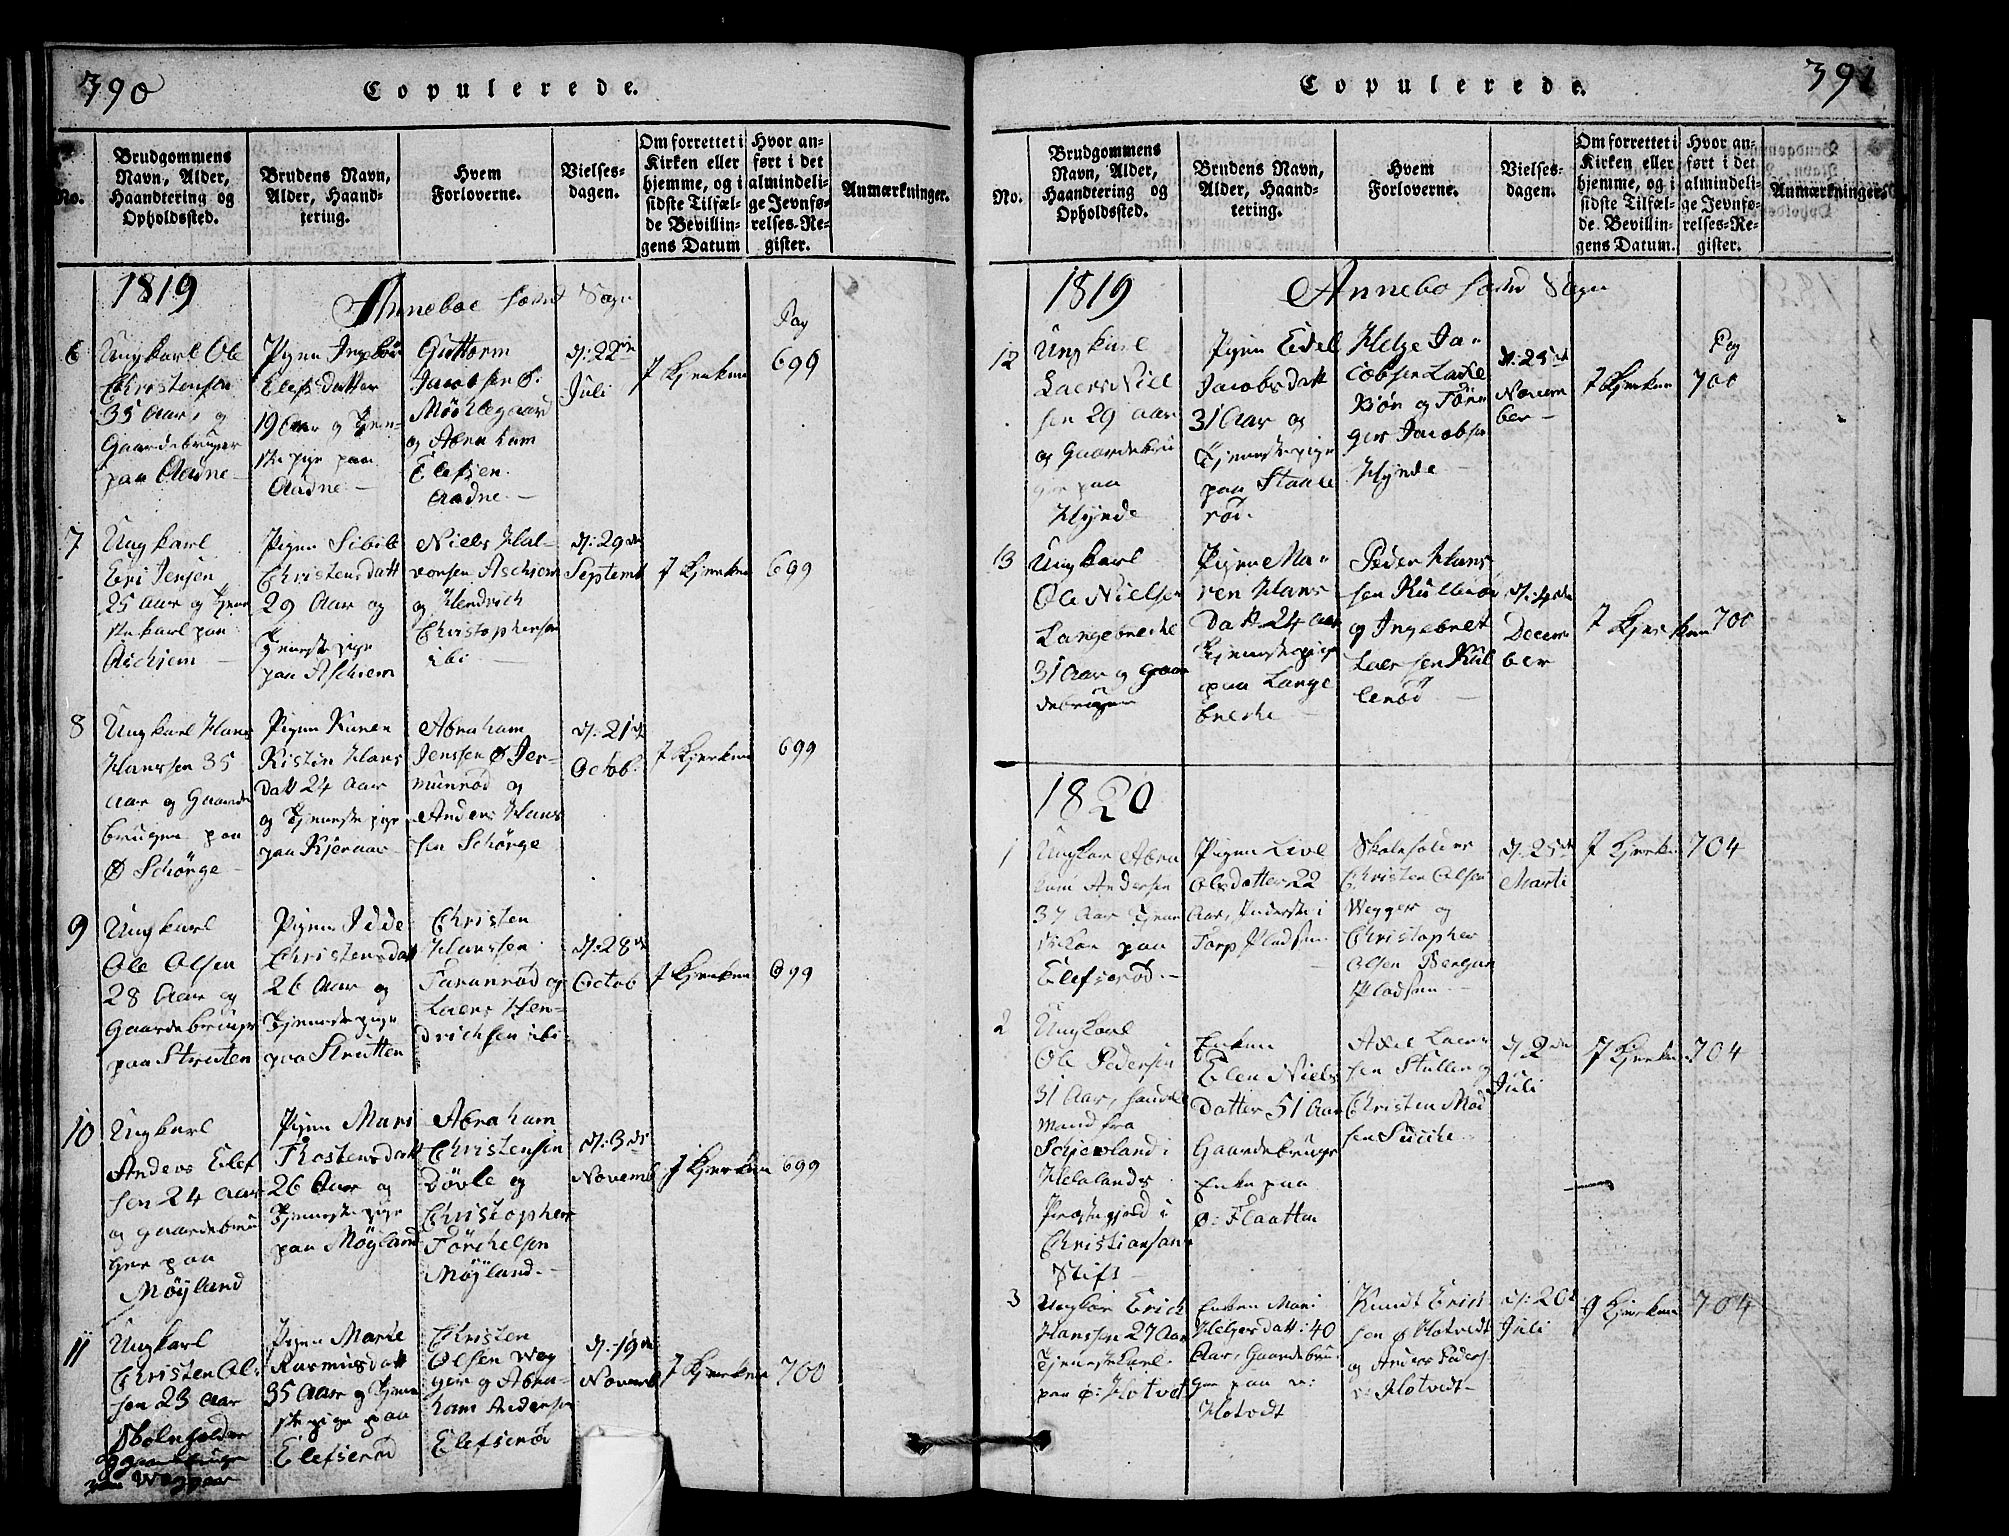 390
Copulerede.
No.
Brudgommens
Navn, Alder,
Haandtering og
Opholdssted.
Brudens Navn,
Alder, Haand-
tering.
Hvem
Forloverne.
Vielses-
dagen.
Om forrettet i
Kirken eller
hjemme, og i
sidste Tilfæl-
de Bevillin-
gens Datum
Hvor an-
ført i det
almindeli-
ge Jevnfø-
relses-Re-
gister.
Anmærkninger.
1819
Anneboe Sogn
Pag
6
Ungkarl Ole
Christensen
35 Aar, og
Gaardebruger
paa Aadne
Pigen Ingebör
Elefsdatter
19 Aar og Tjen-
ste pige paa
Aadne
Guttorm
Jacobsen Ø.
Möchlegaard
og Abraham
Elefsen
Aadne
d: 22de
Juli
I Kjerken
699
7
Ungkarl
Eri Jensen
25 Aar og Tjene
ste karl paa
Aschiem
Pigen Sibil
Christensdatt
29 Aar og
Tjeneste pige
paa Aschiem
Niels Hal-
vorsen Aschiem
og Hendrich
Christophersen
ibi
d: 29de
Septemb
I Kjerken
699
8
Ungkarl Hans
Hanssen 35
Aar og Gaarde
bruger paa
Ø Schörge
Pigen Karen
Kistin Hans
datt 24 Aar
og Tjeneste pige
paa Kjeraas
Abraham
Jenssen Ø Jer-
munröd og
Anders Hans
sen Schörge
d: 21de
Octob:
I Kjerken
699
9
Ungkarl
Ole Olsen
28 Aar og
Gaardebruger
paa Struten
Pigen Idde
Christensdatt
26 Aar og
Tjeneste pige
paa Strutten
Christen
Hanssen
Faranröd og
Laers Hen-
drichsen ibi
d: 28de
Octob
I Kjerken
699
10
Ungkarl
Anders Elef
sen 24 Aar
og gaardebru
ger paa
Möyland
Pigen Mari
Thostensdatt
26 Aar og
Tjeneste pige
paa Möyland
Abraham
Christensen
Bövle og
Christopher
Törchelsen
Möyland
d: 3de
Novemb
I Kjerken
699
11
Ungkarl
Christen Ol-
sen 23 Aar
Skoleholder
og gaardbruger
paa Wegger
Pigen Marie
Rasmusdatt
35 Aar og Tjene
ste pige paa
Elefseröd
Christen
Olsen Weg
ger og Abra
ham Andersen
Elefseröd
d: 19de
Novemb
I Kjerken
700
391
Copulerede.
No.
Brudgommens
Navn, Alder,
Haandtering og
Opholdssted.
Brudens Navn,
Alder, Haand-
tering.
Hvem
Forloverne.
Vielses-
dagen.
Om forrettet i
Kirken eller
hjemme, og i
sidste Tilfæl-
de Bevillin-
gens Datum.
Hvor an-
ført i det
almindeli-
ge Jevnfø-
relses-Re-
gister.
Anmærkninger.
1819
Annebo Sogn
Pag
12
Ungkarl
Laers Niel
sen 29 Aar
og Gaardebru
ger paa
Hynde
Pigen Edel
Jacobsdatt
31 Aar og
Tjeneste pige
paa Staale
röd
Helge Ja-
cobsen Lackel
Biön og Tön
ger Jacobsen
Hynde
d: 25de
Novem
ber
I Kjerken
700
13
Ungkarl
Ole Nielsen
Langebrecke
31 Aar og Gaar
debruger
Pigen Ma-
ren Hans
Datt 24 Aar
Tjeneste pige
paa Lange
brecke
Peder Hans
sen Kulleröd
og Ingebret
Laersen Kul
leröd
d: 4de
Decem
ber
I Kjerken
700
1820
1
Ungkar Abra
ham Andersen
37 Aar Tjene
ste kar paa
Elefseröd
Pigen Live
Olsdatter 22
Aar, Inderste i
Torp Pladsen
Skoleholder
Christen Olsen
Wegger og
Christopher
Olsen Bergan
Pladsen
d: 25de
Marti
I Kjerken
704
2
Ungkarl
Ole Pedersen
31 Aar, handle
mand fra
Schjevland i
Helalands
Præstegjeld i
Christiansan
Stift
Enken
Elen Niels
datter 51 Aar
Gaardebruger
Enke paa
Ø: Flaatten
Axel Laer-
sen Stullen og
Christen Mad
sen
d. 2den
Juli
I Kjerken
704
3
Ungkar Erich
Hanssen 27 Aar
Tjeneste karl
paa ø: Hotvet
Enken Mari
Helgesdatt: 40
Aar, Gaardebru
ger paa v:
Hotvedt
Knudt Erich
sen ø Hotvedt
og Anders Peders
v: Hotvedt
d: 20de
Juli
I Kjerken
704